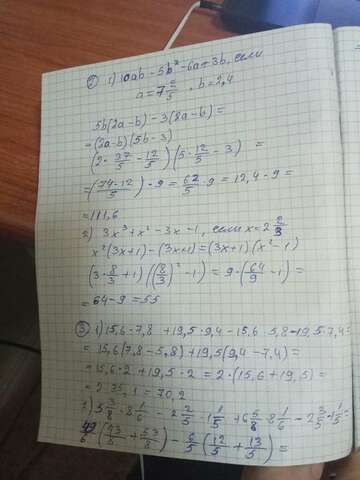 ② 1) 10ab - 5b² - 6a + 3b, если
a = 7 2/5, b = 2,4
5b(2a - b) - 3(8a - b) =
= (2a - b)(5b - 3)
(2 · 37/5 - 12/5)(5 · 12/5 - 3) =
= (74 - 12/5) · 9 = 62/5 · 9 = 12,4 · 9 =
= 111,6
2) 3x³ + x² - 3x - 1, если x = 2 2/3
x²(3x+1) - (3x+1) = (3x+1)(x² - 1)
(3 · 8/3 + 1)((8/3)² - 1) = 9 · (64/9 - 1) =
= 64 - 9 = 55
③ 1) 15,6 · 7,8 + 19,5 · 9,4 - 15,6 · 5,8 - 19,5 · 7,4 =
= 15,6(7,8 - 5,8) + 19,5(9,4 - 7,4) =
= 15,6 · 2 + 19,5 · 2 = 2 · (15,6 + 19,5) =
= 2 · 35,1 = 70,2
2) 5 3/8 · 8 1/6 - 2 2/5 · 1 1/5 + 6 5/8 · 8 1/6 - 2 3/5 · 1 1/5 =
49/6 (43/8 + 53/8) - 6/5 (12/5 + 13/5) =